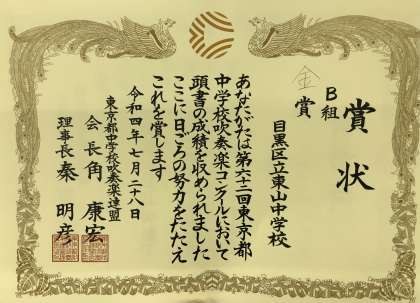 賞状
B組
金賞
目黒区立東山中学校
あなたがたは第六十二回東京都
中学校吹奏楽コンクールにおいて
頭書の成績を収められました
ここに日ごろの努力をたたえ
これを賞します
令和四年七月二十八日
東京都中学校吹奏楽連盟
会長角康宏
理事長秦明彦